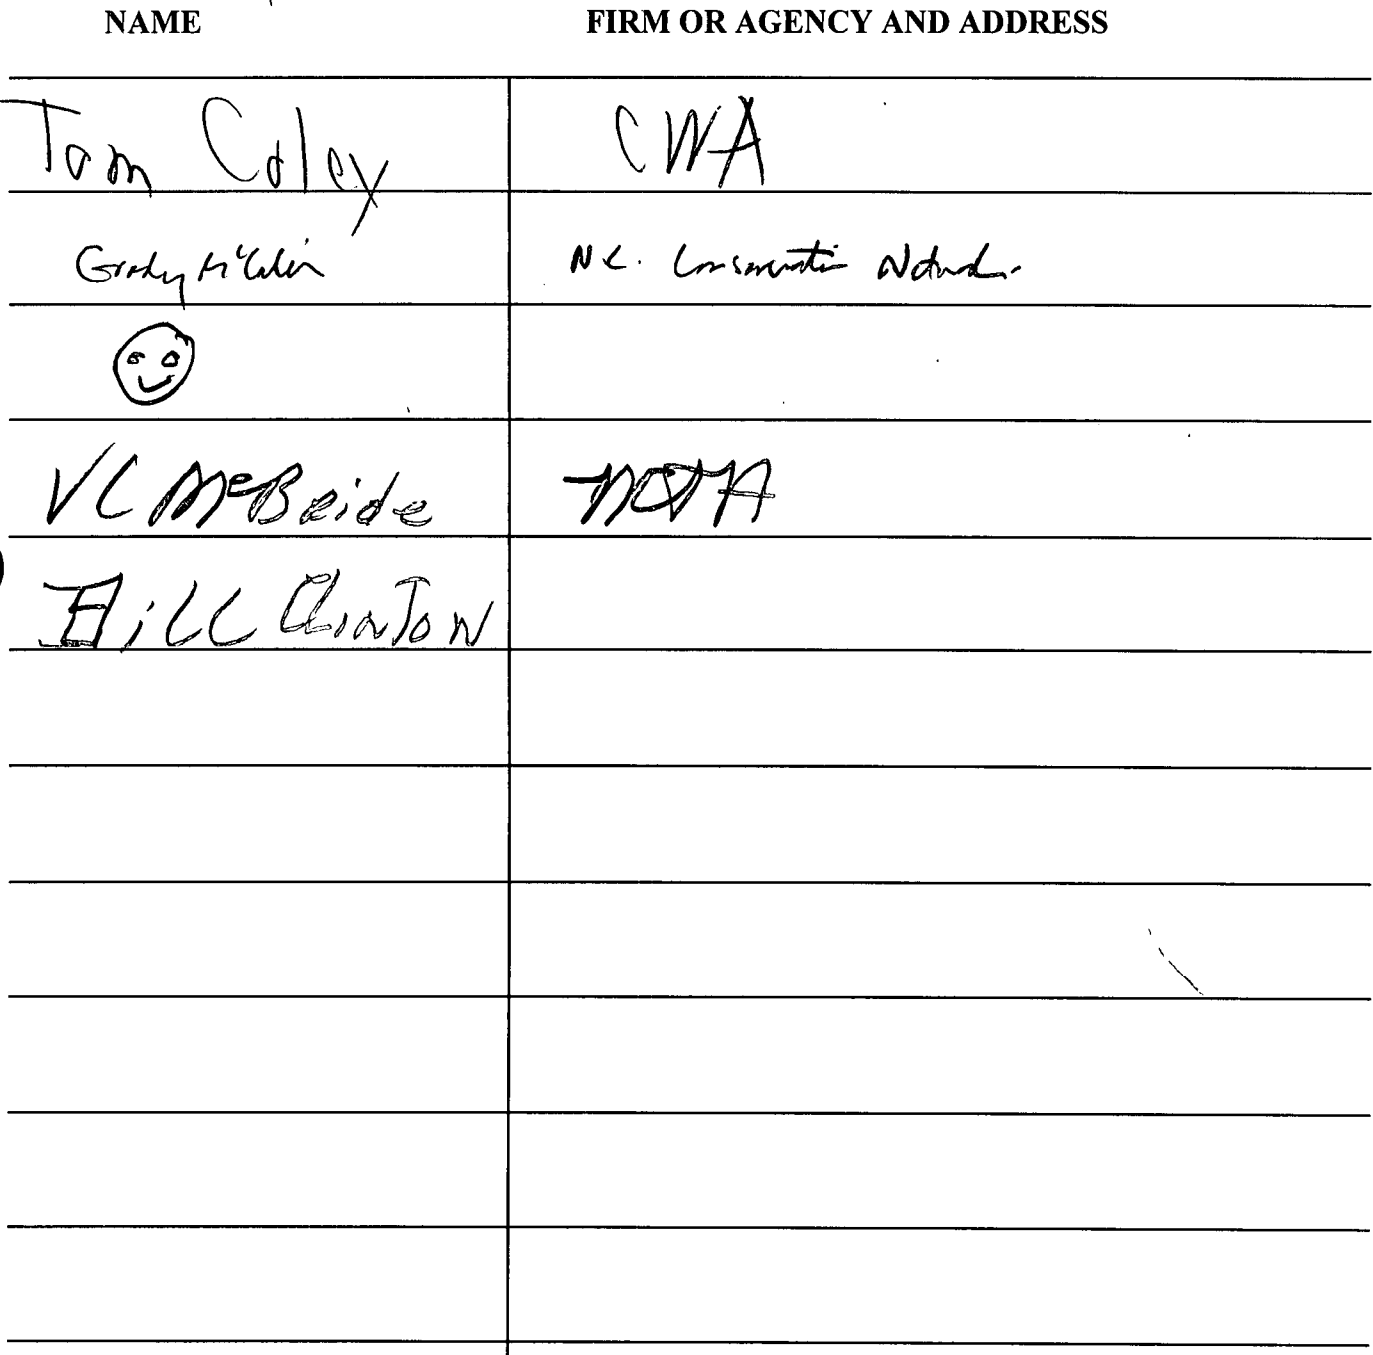 NAME FIRM OR AGENCY AND ADDRESS
Tom Coley CWA
Grady McCallie N.C. Conservation Network
VC McBride
Bill Clinton